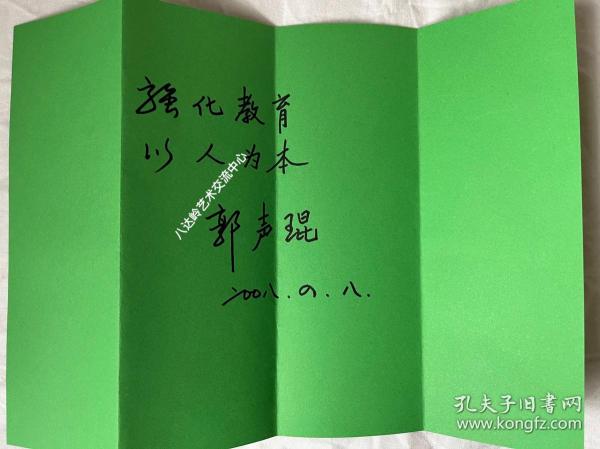 强化教育
以人为本
郭声琨
八达岭艺术交流中心
孔夫子旧书网
www.kongfz.com